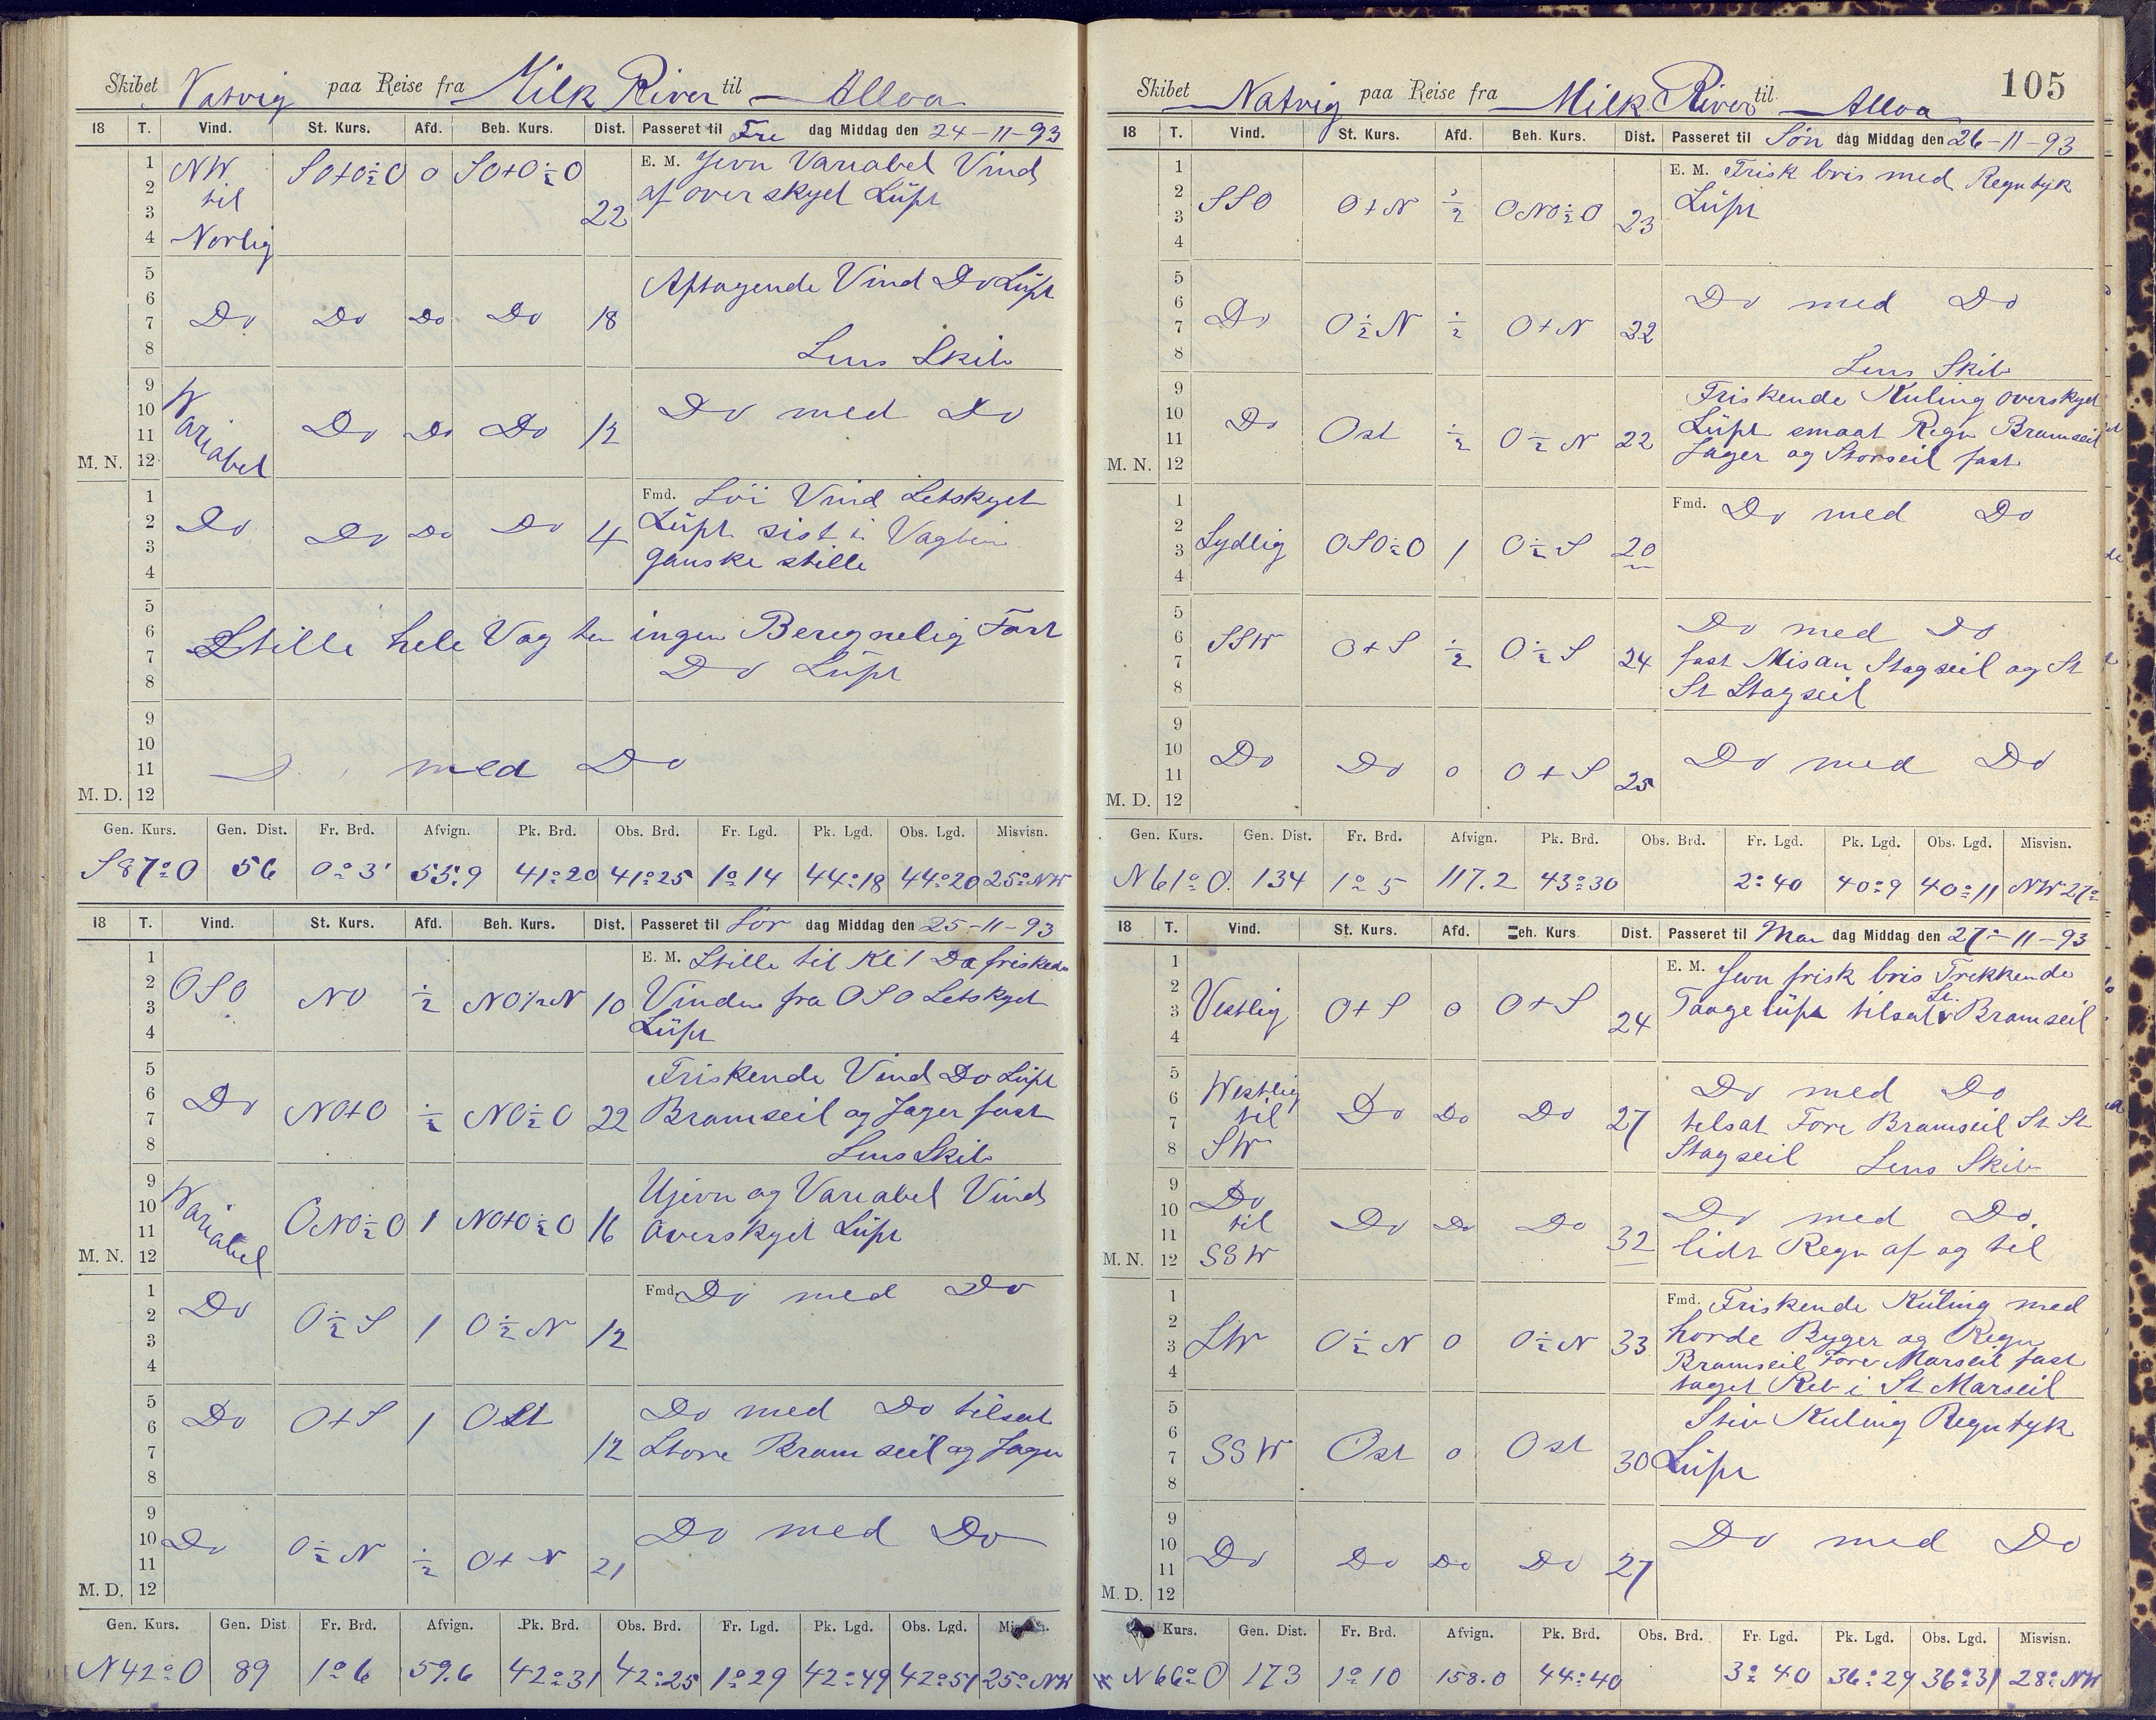 Skibet Natvig paa Reise fra Milk River til Alloa
18 T. Vind. St. Kurs. Afd. Beh. Kurs. Dist. Passeret til Fre dag Middag den 24-11-93
1 2 3 4 NW til Norlig SO+O½O 0 SO+O½O 22 E. M. Jevn Variabel Vind
af over skyet Lüft
5 6 7 8 Do Do Do Do 18 Aftagende Vind Do Lüft
Lens Skib
9 10 11 M. N. 12 Variabel Do Do Do 12 Do med Do
1 2 3 4 Do Do Do Do 4 Fmd. Löi Vind Letskyet
Lüft sist i Vagten
ganske stille
5 6 7 8 Stille hele Vagten ingen Beregnelig Fart
Do Lüft
9 10 11 M. D. 12 med Do
Gen. Kurs. Gen. Dist. Fr. Brd. Afvign. Pk. Brd. Obs. Brd. Fr. Lgd. Pk. Lgd. Obs. Lgd. Misvisn.
S 87° O 56 0° 3' 55.9 41°20 41°25 1° 14 44°18 44°20 25° NW
18 T. Vind. St. Kurs. Afd. Beh. Kurs. Dist. Passeret til Lør dag Middag den 25-11-93
1 2 3 4 OSO NO ½ NO½N 10 E. M. Stille til Kl 1 Da frisked
Vinden fra OSO Letskyet
Lüft
5 6 7 8 Do NO+O ½ NO½O 22 Friskende Vind Do Lüft
Bramseil og Jager fast
Lens Skib
9 10 11 M. N. 12 Variabel ONO½O 1 NO+O½O 16 Ujevn og Variabel Vind
overskyet Lüft
1 2 3 4 Do O½S 1 O½N 12 Fmd. Do med Do
5 6 7 8 Do O+S 1 Ost 12 Do med Do tilsat
Store Bram seil og Jager
9 10 11 M. D. 12 Do O½N ½ O+N 21 Do med Do
Gen. Kurs. Gen. Dist Fr. Brd. Afvign. Pk. Brd. Obs. Brd. Fr. Lgd. Pk. Lgd. Obs. Lgd.
N 42° O 89 1° 6 59.6 42°31 42°25 1° 29 42°49 42°51 25° NW
105
Skibet Natvig paa Reise fra Milk River til Alloa
18 T. Vind. St. Kurs. Afd. Beh. Kurs. Dist. Passeret til Søn dag Middag den 26-11-93
1 2 3 4 SSO O+N ½ ONO½O 23 E. M. Frisk bris med Regntyk
Lüft
5 6 7 8 Do O½N ½ O+N 22 Do med Do
Lens Skib
9 10 11 M. N. 12 Do Ost ½ O½N 22 Friskende Kuling overskyet
Lüft smaat Regn Bramseil
Jager og Storseil fast
1 2 3 4 Sydlig OSO½O 1 O½S 20 Fmd. Do med Do
5 6 7 8 SSW O+S ½ O½S 24 Do med Do
fast Misan Stagseil og St
St Stagseil
9 10 11 M. D. 12 Do Do 0 O+S 25 Do med Do
Gen. Kurs. Gen. Dist. Fr. Brd. Afvign. Pk. Brd. Obs. Brd. Fr. Lgd. Pk. Lgd. Obs. Lgd. Misvisn.
N 61° O. 134 1° 5 117.2 43°30 2° 40 40°9 40°11 NW 27°
18 T. Vind. St. Kurs. Afd. Beh. Kurs Dist. Passeret til Man dag Middag den 27-11-93
1 2 3 4 Vestlig O+S 0 O+S 24 E. M. Jevn frisk bris Trekkende
Taage lüft tilsat St. Bramseil
5 6 7 8 Westlig til SW Do Do Do 27 Do med Do
tilsat Fore Bramseil St St
Stagseil Lens Skib
9 10 11 M. N. 12 Do til SSW Do Do Do 32 Do med Do.
lidt Regn af og til
1 2 3 4 SW O½N 0 O½N 33 Fmd. Friskende Küling med
horde Byger og Regn
Bramseil Fore Marseil fast
taget Reb i St Marseil
5 6 7 8 SSW Ost 0 Ost 30 Stiv Kuling Regntyk
Lüft
9 10 11 M. D. 12 Do Do Do Do 27 Do med Do
Kurs. Gen. Dist. Fr. Brd. Afvign. Pk. Brd. Obs. Brd. Fr. Lgd. Pk. Lgd. Obs. Lgd. Misvisn.
N 66° O 173 1° 10 158.0 44°40 3° 40 36°29 36°31 28° NW